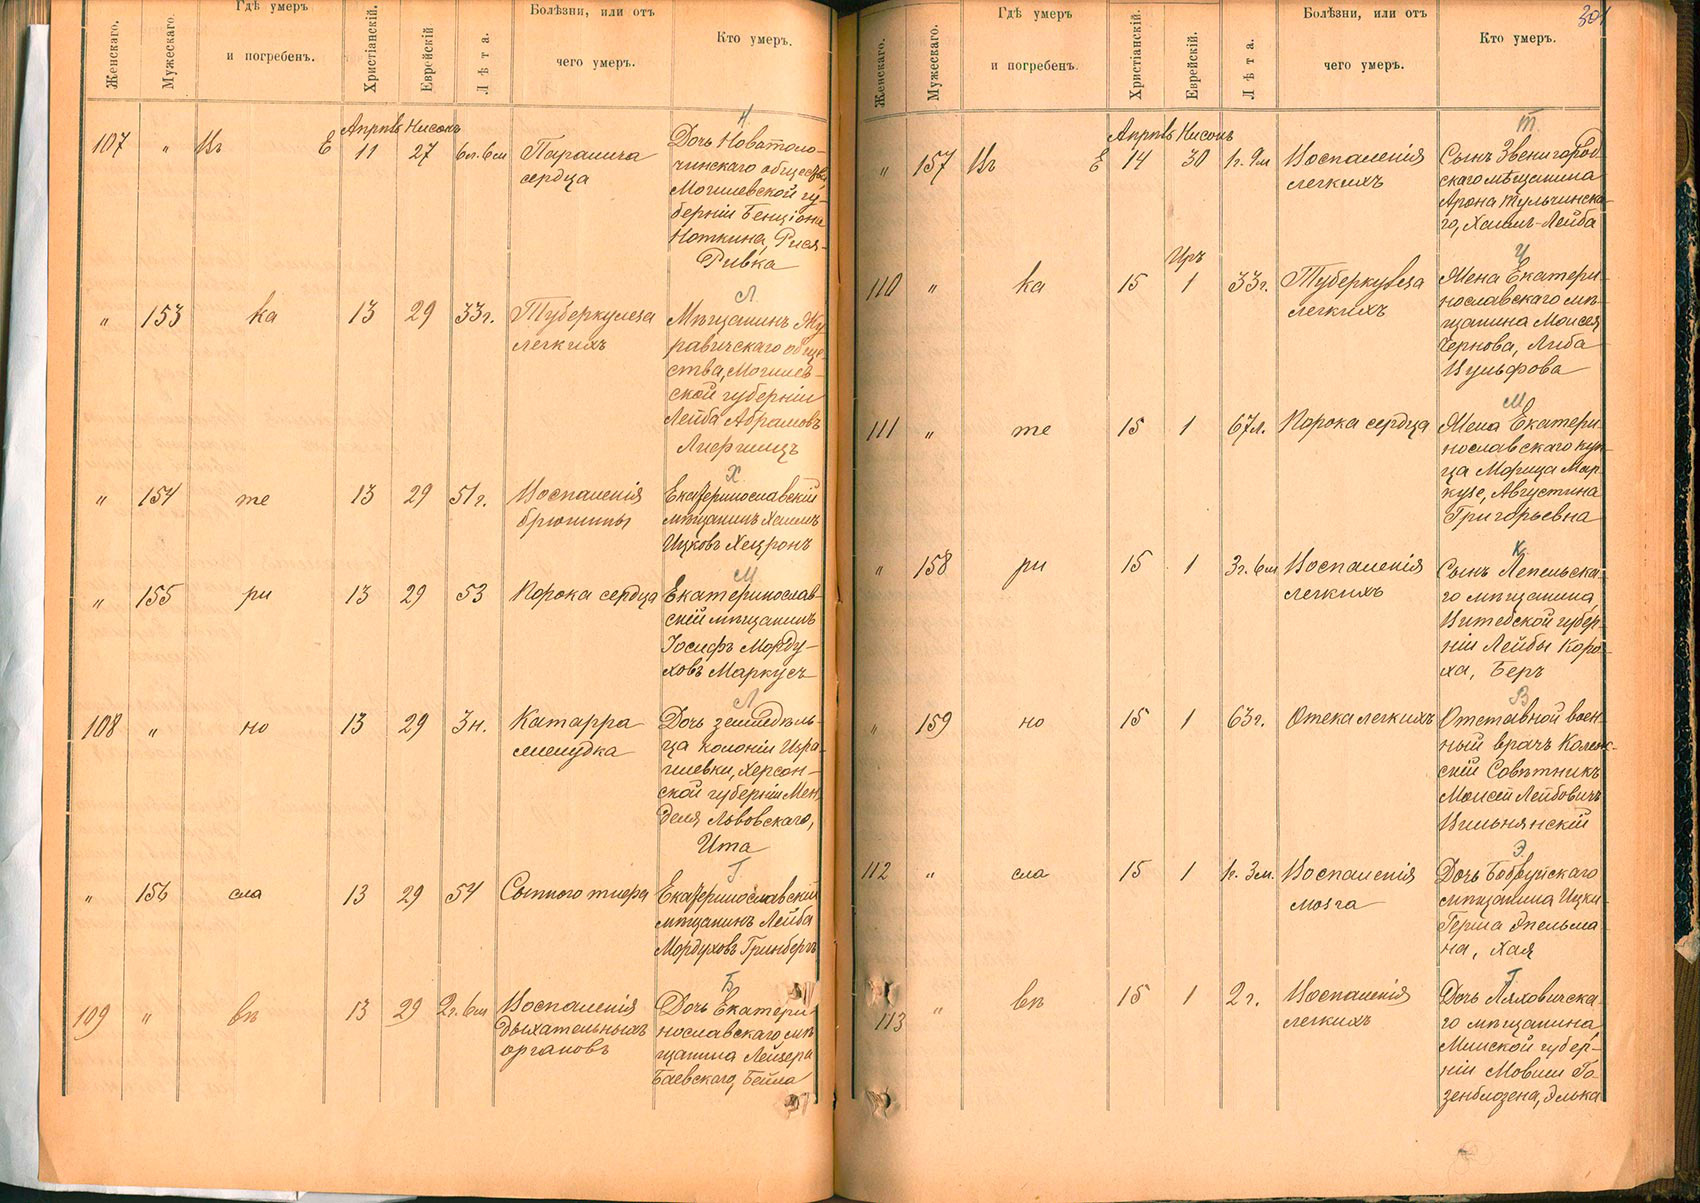 Женскаго.
Мужескаго.
Гдѣ умеръ
и погребенъ.
Христіанскій.
Еврейскій
Лѣта.
Болѣзни, или отъ
чего умеръ.
Кто умеръ.
Н
107 „ Въ Е
Апрѣль Нисонъ
11 27 6л. 6м
Паралича
сердца
Дочь Новатоло-
чинскаго общества
Могилевской гу-
берніи Бенціона
Ноткина, Рися-
Ривка
Л
„ 153 ка 13 29 33г.
Туберкулеза
легкихъ
Мѣщанинъ Жу
равичскаго обще-
ства, Могилев-
ской губерніи
Лейба Абрамовъ
Лифшицъ
Х
„ 154 те 13 29 51г.
Воспаленія
брюшины
Екатеринославскій
мѣщанинъ Хаимъ
Ицковъ Хецронъ
М
„ 155 ри 13 29 53
Порока сердца
Екатеринослав
скій мѣщанинъ
Іосифъ Морду-
ховъ Маркусъ
Л
108 „ но 13 29 3н.
Катарра
желудка
Дочь земледѣль-
ца колоніи Изра-
илевки, Херсон-
ской губерніи Мен-
деля Львовскаго,
Ита
Г
„ 156 сла 13 29 54
Сыпного тифа
Екатеринославскій
мѣщанинъ Лейба
Мордуховъ Гринбергъ
Б
109 „ вѣ 13 29 2г. 6м
Воспаленія
дыхательныхъ
органовъ
Дочь Екатери
нославскаго мѣ
щанина Лейзера
Баевскаго, Бейла
301
Женскаго.
Мужескаго.
Гдѣ умеръ
и погребенъ.
Христіанскій.
Еврейскій.
Лѣта.
Болѣзни, или отъ
чего умеръ.
Кто умеръ.
Т
„ 157 Въ Е
Апрѣль Нисонъ
14 30 1г. 9м
Воспаленія
легкихъ
Сынъ Звенигород-
скаго мѣщанина
Арона Тульчинска-
го, Хаимъ-Лейба
Ч
Иръ
110 „ ка 15 1 33г.
Туберкулеза
легкихъ
Жена Екатери-
нославскаго мѣ-
щанина Моисея
Чернова, Либа
Вульфова
М
111 „ те 15 1 67л.
Порока сердца
Жена Екатери
нославскаго куп-
ца Морица Мар
кузе, Августина
Григорьевна
К
„ 158 ри 15 1 3г. 6м
Воспаленія
легкихъ
Сынъ Лепельска-
го мѣщанина
Витебской губер-
ніи Лейбы Коро-
ха, Беръ
В
„ 159 но 15 1 63г.
Отека легкихъ
Отставной воен-
ный врачъ Колеж-
скій Совѣтникъ
Моисей Лейбовичъ
Вильнянскій
Э
112 „ сла 15 1 1г. 3м.
Воспаленія
мозга
Дочь Бобруйскаго
мѣщанина Ицки-
Герша Эпельма
на, Хая
Г
113 „ вѣ 15 1 2г.
Воспаленія
легкихъ
Дочь Ляховичска-
го мѣщанина,
Минской губер-
ніи Мовши Га-
зенблозена, Элька